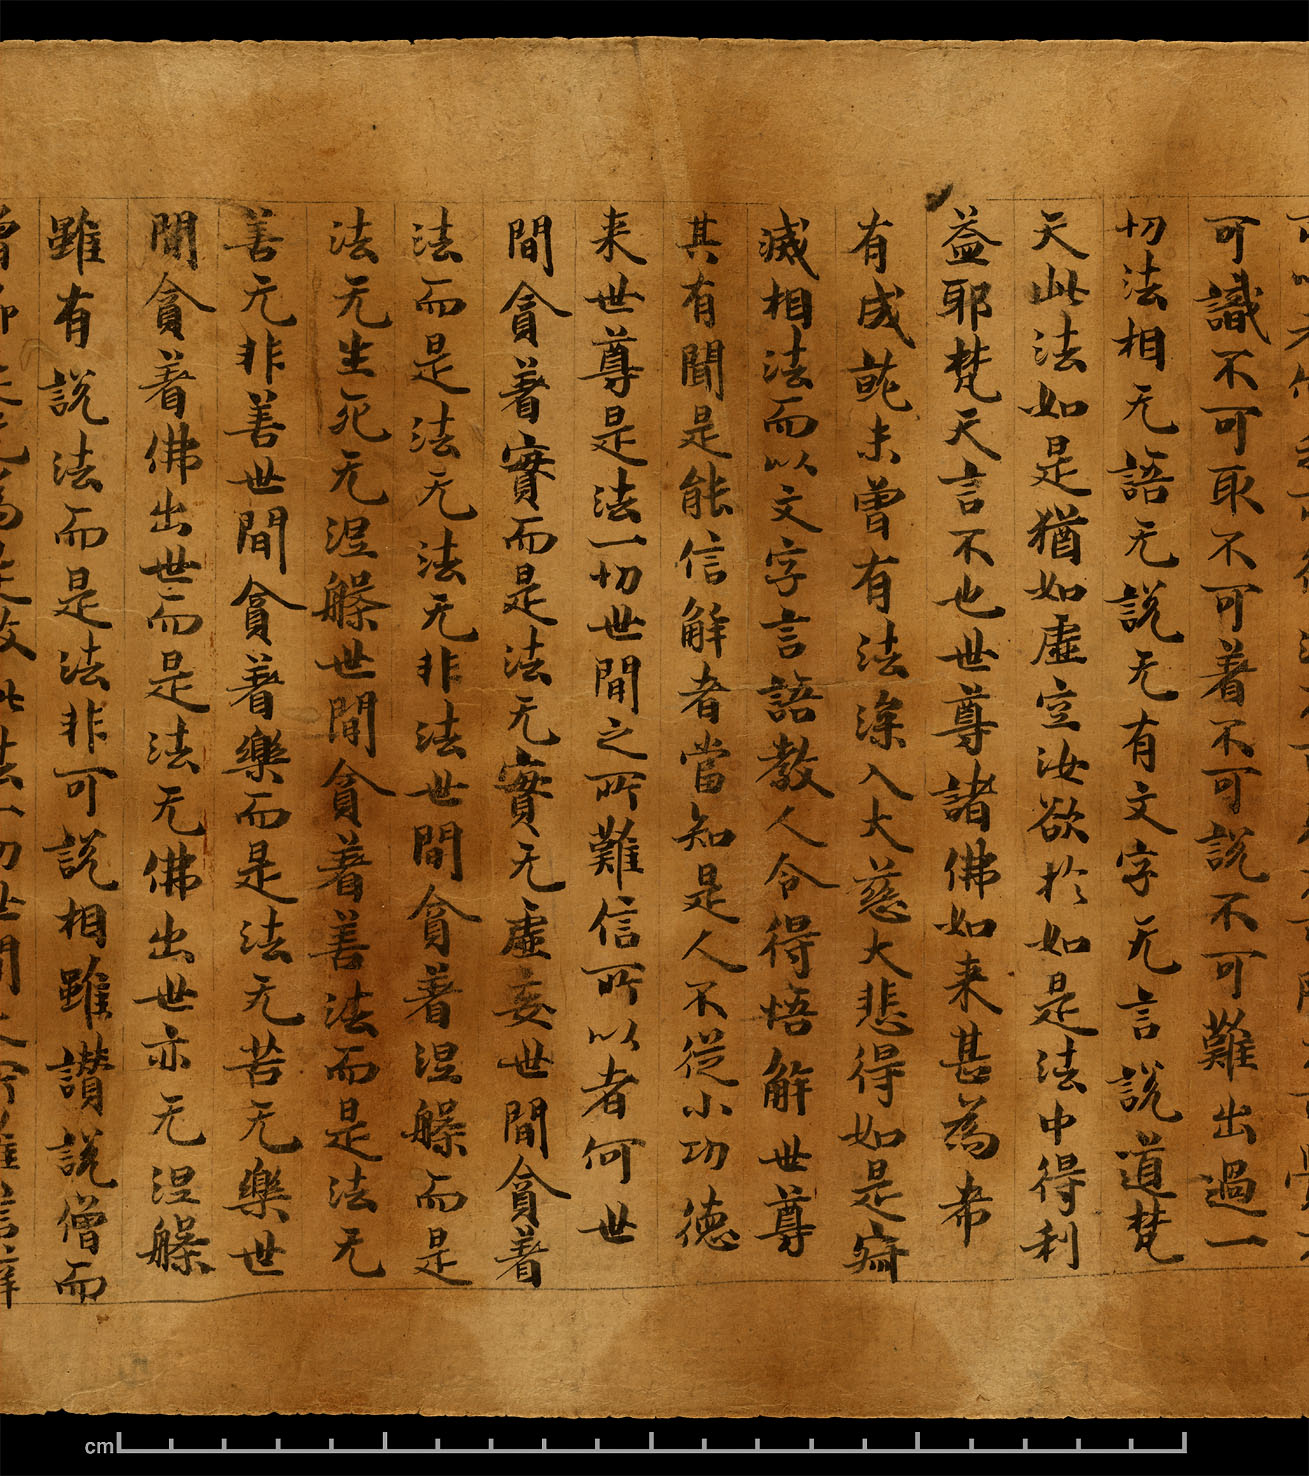 可識不可取不可著不可說不可難出過一
切法相无語无說无有文字无言說道梵
天此法如是猶如虛空汝欲於如是法中得利
益耶梵天言不也世尊諸佛如来甚為希
有成就未曾有法深入大慈大悲得如是寂
滅相法而以文字言語教人令得悟解世尊
其有聞是能信解者當知是人不從小功德
来世尊是法一切世間之所難信所以者何世
間貪著實而是法无實无虛妄世間貪著
法而是法无法无非法世間貪著涅槃而是
法无生死无涅槃世間貪著善法而是法无
善无非善世間貪著樂而是法无苦无樂世
間貪著佛出世而是法无佛出世亦无涅槃
雖有說法而是法非可說相雖讃說僧而